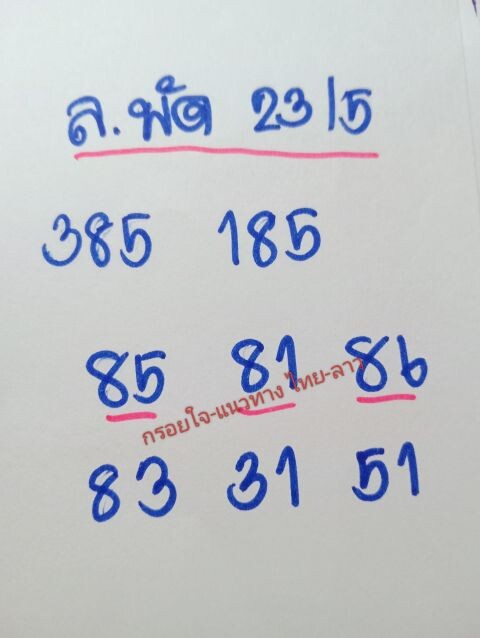 ล.พัด 23/5
385 185
85 81 86
กรอยใจ-แนวทาง ไทย-ลาว
83 31 51